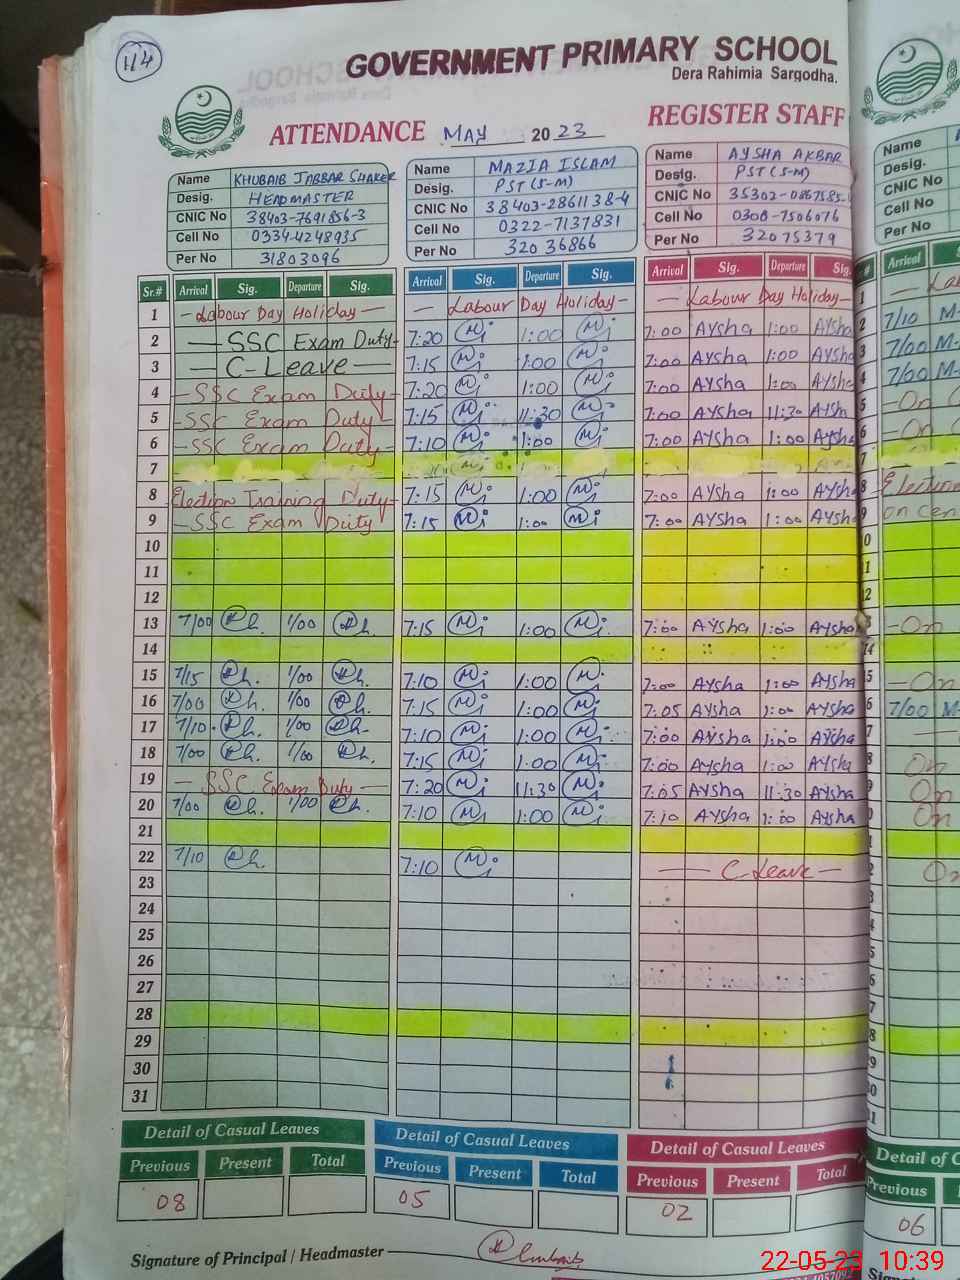 114
GOVERNMENT PRIMARY SCHOOL
Dera Rahimia Sargodha.
ATTENDANCE MAY 2023 REGISTER STAFF
Name KHUBAIB JABBAR SHAKER
Desig. HEADMASTER
CNIC No 38403-7691856-3
Cell No 0334-4248935
Per No 31803096
Name MAZIA ISLAM
Desig. PST (S-M)
CNIC No 38403-2861138-4
Cell No 0322-7137831
Per No 32036866
Name AYSHA AKBAR
Desig. PST (S-M)
CNIC No 35302-0867585-
Cell No 0308-7506076
Per No 32075379
Name
Desig.
CNIC No
Cell No
Per No
Sr.# Arrival Sig. Departure Sig. Arrival Sig. Departure Sig. Arrival Sig. Departure Sig. Arrival
1 - Labour Day Holiday - - Labour Day Holiday - - Labour Day Holiday - 1
2 - SSC Exam Duty - 7:20 1:00 7:00 Aysha 1:00 Aysha 2 7/10
3 - C-Leave - 7:15 1:00 7:00 Aysha 1:00 Aysha 3 7/00
4 - SSC Exam Duty - 7:20 1:00 7:00 Aysha 1:00 Aysha 4 7/00
5 - SSC Exam Duty - 7:15 11:30 7:00 Aysha 11:30 Aysha 5 - On
6 - SSC Exam Duty - 7:10 1:00 7:00 Aysha 1:00 Aysha 6 - On
7
8 Election Training Duty - 7:15 1:00 7:00 Aysha 1:00 Aysha 8 Election
9 - SSC Exam Duty 7:15 1:00 7:00 Aysha 1:00 Aysha 9 on Cen
10
11
12
13 7/00 1/00 7:15 1:00 7:00 Aysha 1:00 Aysha - On
14
15 7/15 1/00 7:10 1:00 7:00 Aysha 1:00 Aysha - On
16 7/00 1/00 7:15 1:00 7:05 Aysha 1:00 Aysha 7/00
17 7/10 1/00 7:10 1:00 7:00 Aysha 1:00 Aysha
18 7/00 1/00 7:15 1:00 7:00 Aysha 1:00 Aysha On
19 - SSC Exam Duty - 7:20 11:30 7:05 Aysha 11:30 Aysha On
20 7/00 1/00 7:10 1:00 7:10 Aysha 1:00 Aysha On
21
22 7/10 7:10 - C-Leave - On
23
24
25
26
27
28
29
30
31
Detail of Casual Leaves Detail of Casual Leaves Detail of Casual Leaves Detail of C
Previous Present Total Previous Present Total Previous Present Total Previous
08 05 02 06
Signature of Principal / Headmaster
22-05-23 10:39